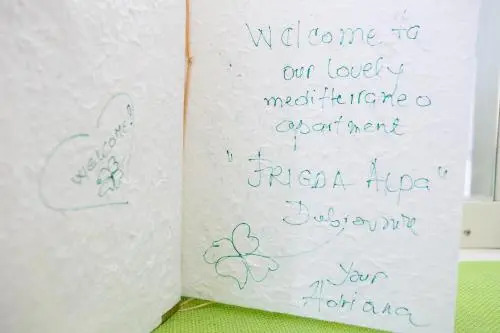 Welcome!
Welcome to
our lovely
mediterraneo
apartment
"FRIGDA Alpa"
Dubrovnik
Your
Adriana